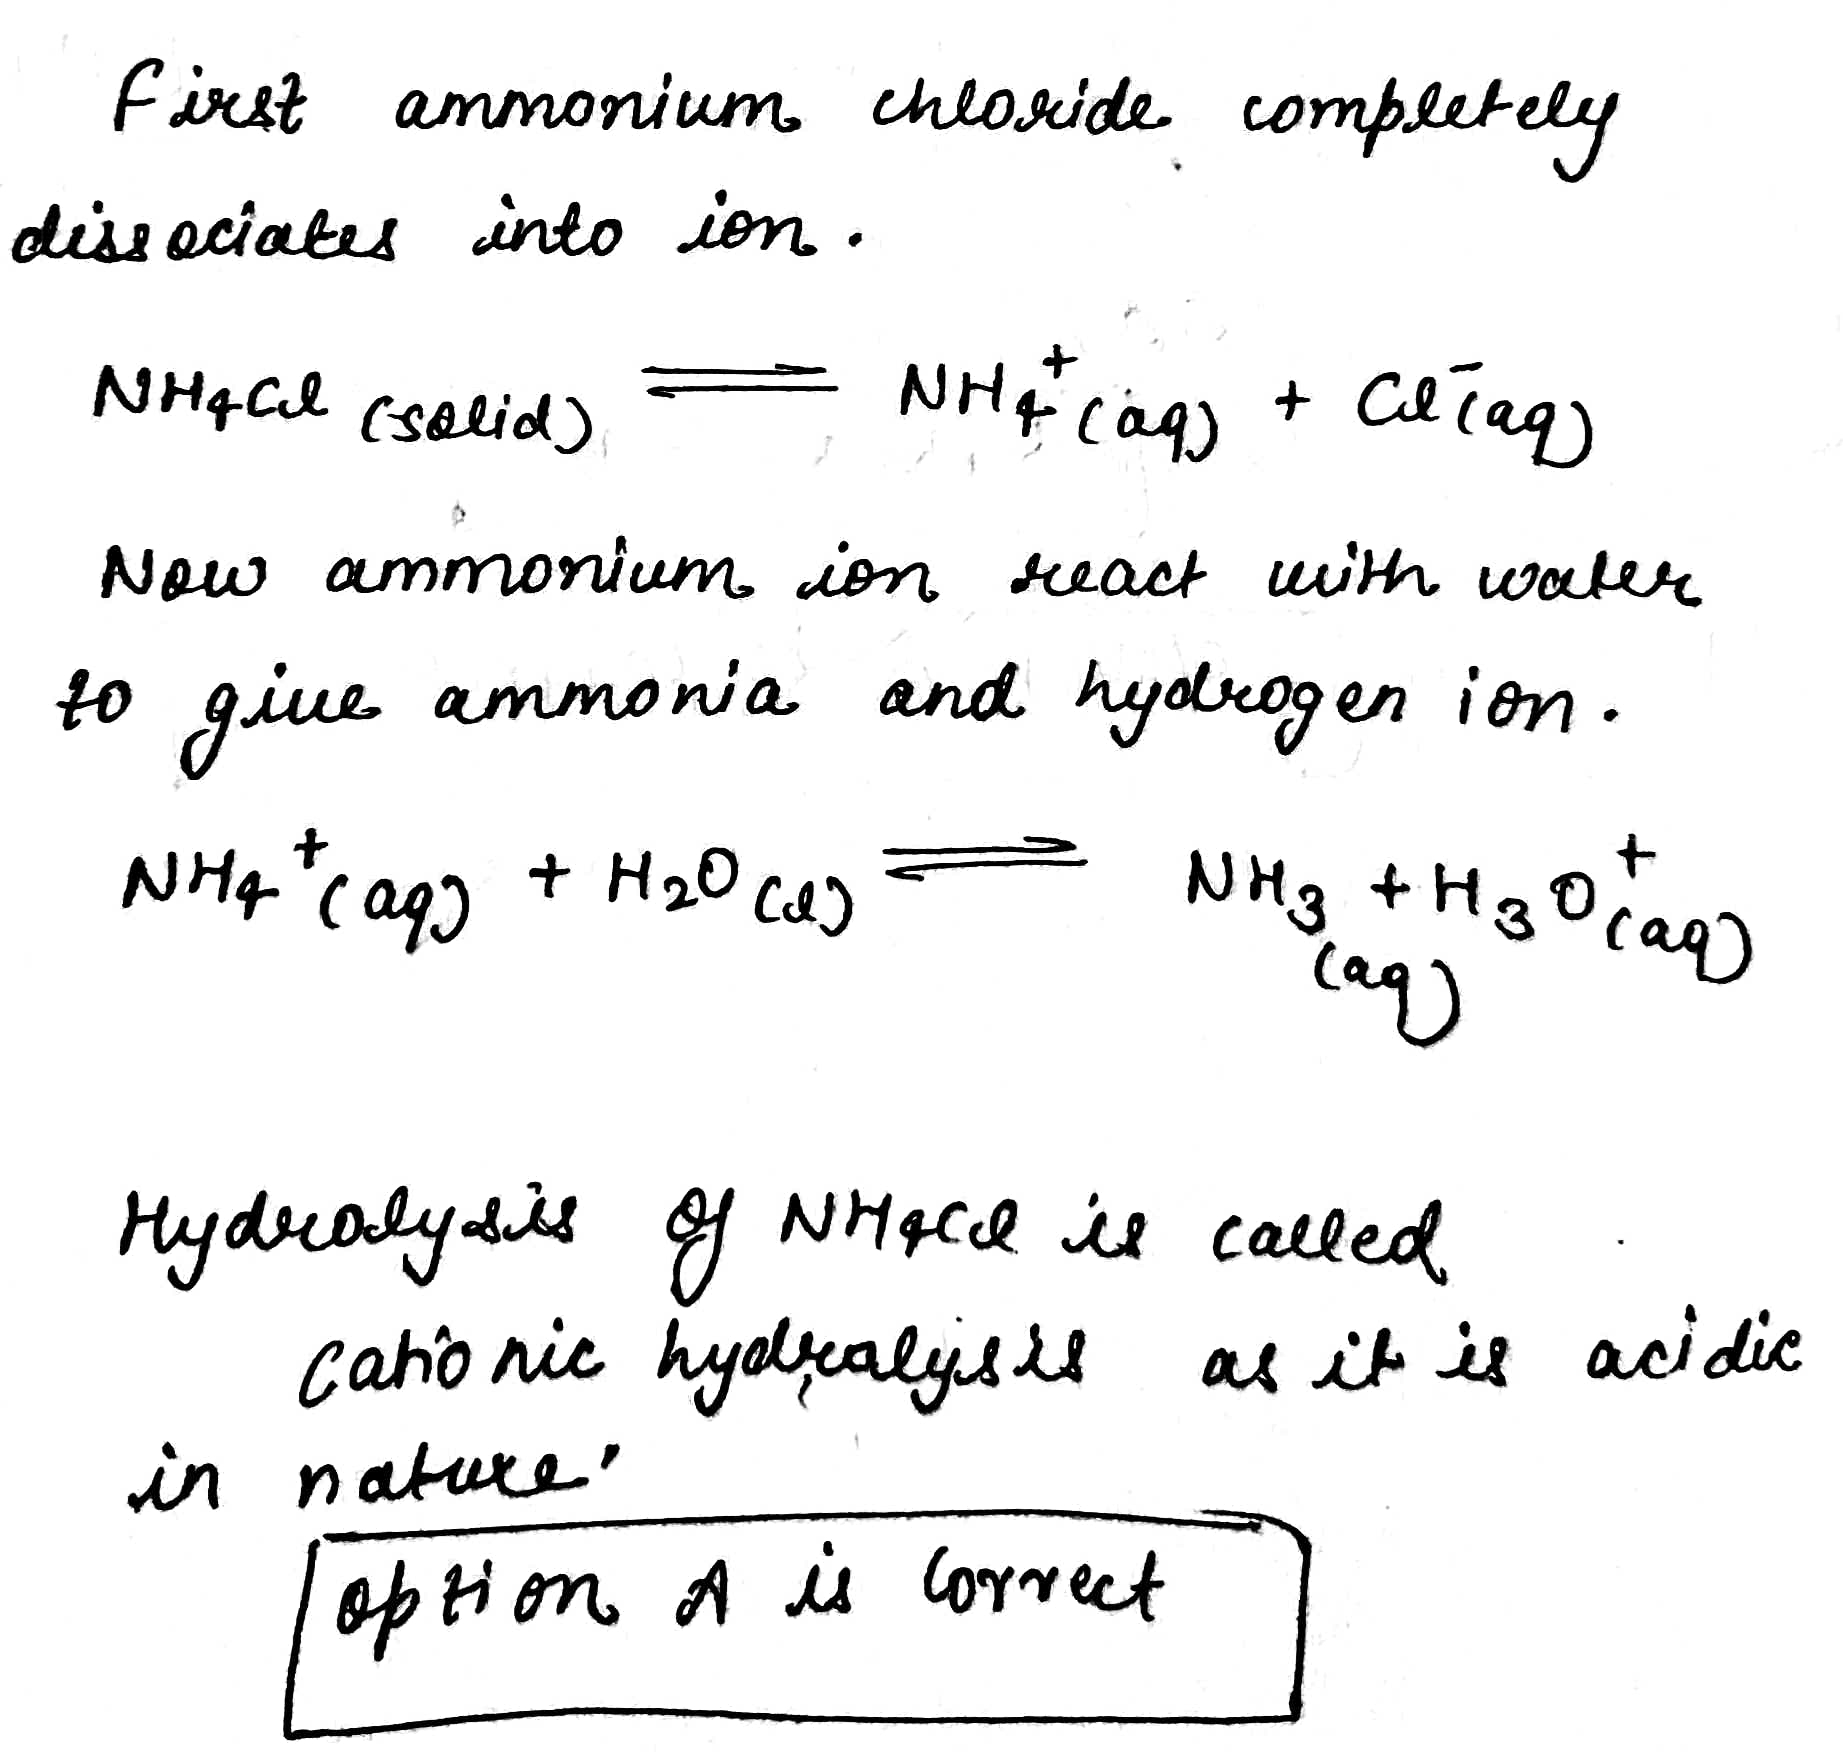 First ammonium chloride completely
dissociates into ion.
NH₄Cl (solid) ⇌ NH₄⁺(aq) + Cl⁻(aq)
Now ammonium ion react with water
to give ammonia and hydrogen ion.
NH₄⁺(aq) + H₂O(l) ⇌ NH₃(aq) + H₃O⁺(aq)
Hydrolysis of NH₄Cl is called
cationic hydralysis as it is acidic
in nature.
option A is correct